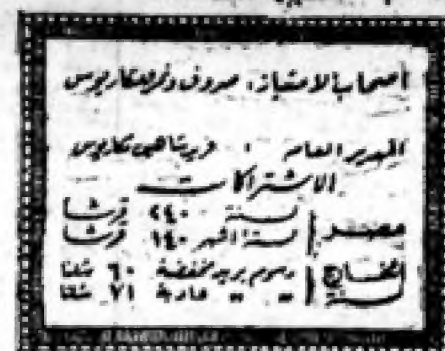 أصحاب الامتياز: صروف ونمر ومكاريوس
المدير العام : فريد شاهين مكاريوس
الاشتراكات
مصر لسنة ٢٤٠ قرشا
لستة أشهر ١٤٠ قرشا
الخارج رسوم بريد مخفضة ٦٠ شلنا
لسنة " " عادية ٧١ شلنا